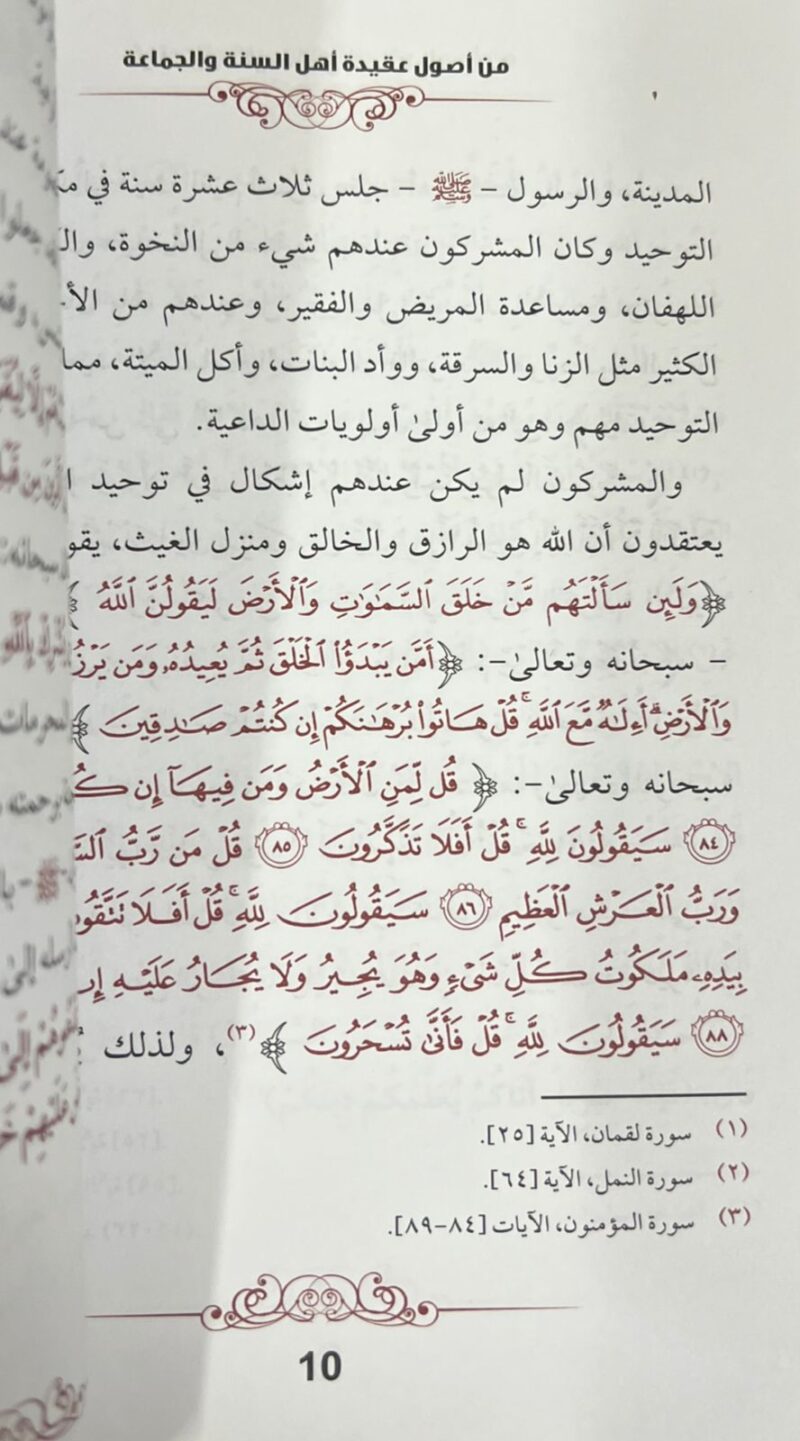 من أصول عقيدة أهل السنة والجماعة
المدينة، والرسول – ﷺ – جلس ثلاث عشرة سنة في
التوحيد وكان المشركون عندهم شيء من النخوة،
اللهفان، ومساعدة المريض والفقير، وعندهم من
الكثير مثل الزنا والسرقة، ووأد البنات، وأكل الميتة، مما
التوحيد مهم وهو من أولىٰ أولويات الداعية.
والمشركون لم يكن عندهم إشكال في توحيد
يعتقدون أن الله هو الرازق والخالق ومنزل الغيث،
﴿وَلَئِن سَأَلْتَهُم مَّنْ خَلَقَ ٱلسَّمَٰوَٰتِ وَٱلْأَرْضَ لَيَقُولُنَّ ٱللَّهُ ﴾
– سبحانه وتعالىٰ–: ﴿أَمَّن يَبْدَؤُا۟ ٱلْخَلْقَ ثُمَّ يُعِيدُهُۥ وَمَن
وَٱلْأَرْضِ ۗ أَءِلَٰهٌ مَّعَ ٱللَّهِ ۚ قُلْ هَاتُوا۟ بُرْهَٰنَكُمْ إِن كُنتُمْ صَٰدِقِينَ ﴾
سبحانه وتعالىٰ–: ﴿ قُل لِّمَنِ ٱلْأَرْضُ وَمَن فِيهَآ إِن
٨٤ سَيَقُولُونَ لِلَّهِ ۚ قُلْ أَفَلَا تَذَكَّرُونَ ٨٥ قُلْ مَن رَّبُّ
وَرَبُّ ٱلْعَرْشِ ٱلْعَظِيمِ ٨٦ سَيَقُولُونَ لِلَّهِ ۚ قُلْ أَفَلَا
بِيَدِهِۦ مَلَكُوتُ كُلِّ شَىْءٍ وَهُوَ يُجِيرُ وَلَا يُجَارُ عَلَيْهِ
٨٨ سَيَقُولُونَ لِلَّهِ ۚ قُلْ فَأَنَّىٰ تُسْحَرُونَ ﴾(٣)، ولذلك
(١) سورة لقمان، الآية [٢٥].
(٢) سورة النمل، الآية [٦٤].
(٣) سورة المؤمنون، الآيات [٨٤–٨٩].
10